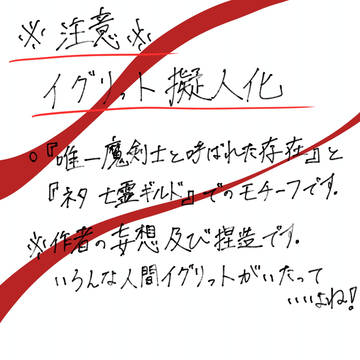 ※注意※
イグリット擬人化
○『唯一魔剣士と呼ばれた存在』と
『ネタ 亡霊ギルド』でのモチーフです。
※作者の妄想及び捏造です。
いろんな人間イグリットがいたって
いいよね!